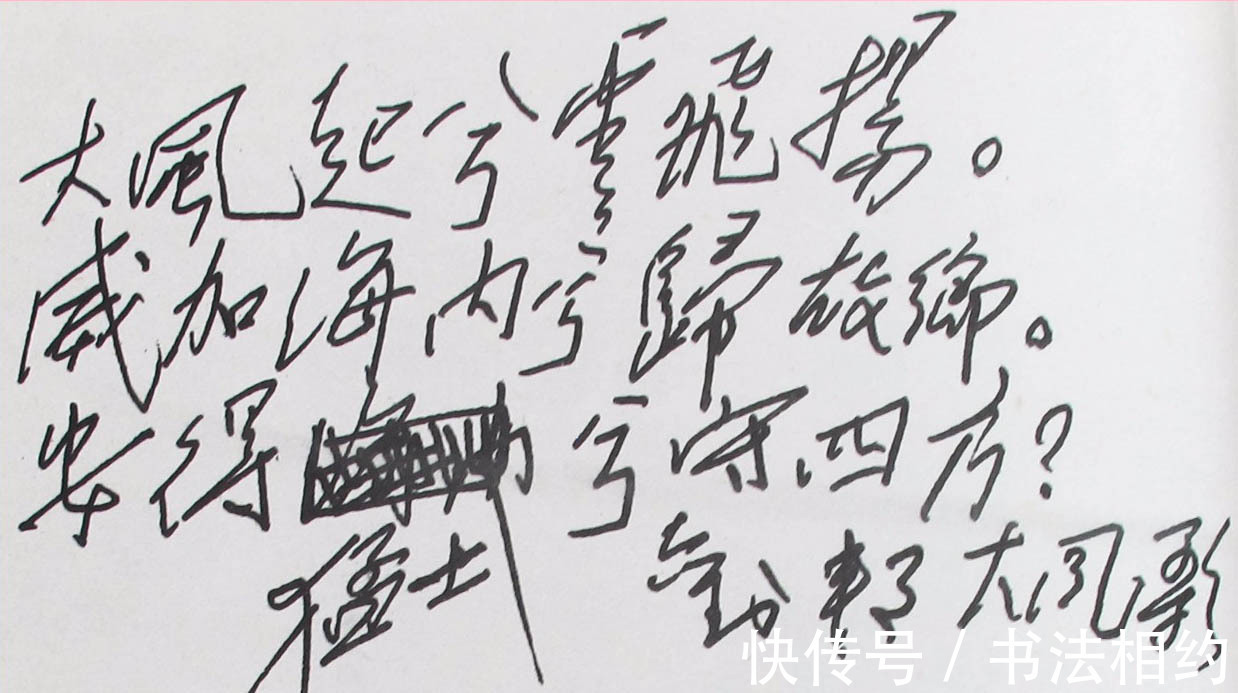 大風起兮雲飛揚。
威加海内兮歸故鄉。
安得猛士兮守四方？
劉邦大風歌
快传号 / 书法相约